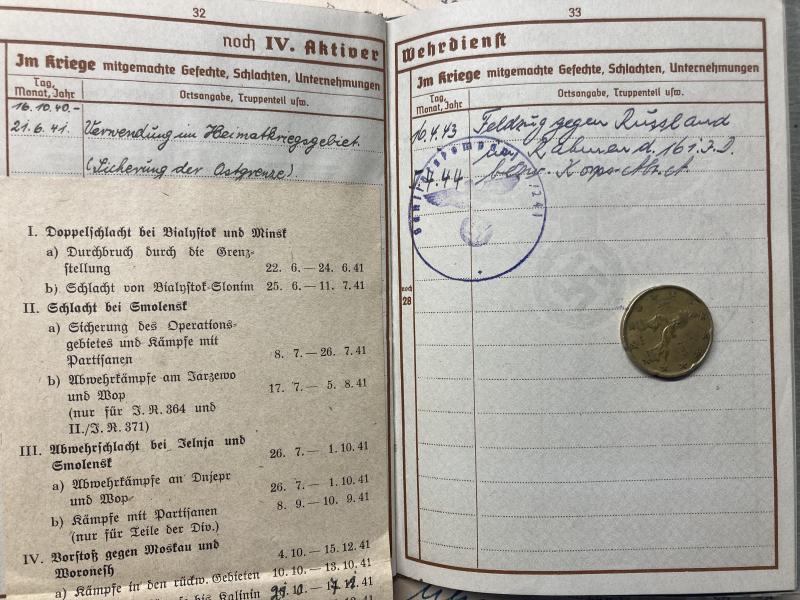 32
noch IV. Aktiver
Im Kriege mitgemachte Gefechte, Schlachten, Unternehmungen
Tag,
Monat, Jahr
Ortsangabe, Truppenteil usw.
16.10.40.-
21.6.41. Verwendung im Heimatkriegsgebiet
(Sicherung der Ostgrenze).
I. Doppelschlacht bei Bialystok und Minsk
a) Durchbruch durch die Grenz-
stellung 22. 6. — 24. 6. 41
b) Schlacht von Bialystok-Slonim 25. 6. — 11. 7. 41
II. Schlacht bei Smolensk
a) Sicherung des Operations-
gebietes und Kämpfe mit
Partisanen 8. 7. — 26. 7. 41
b) Abwehrkämpfe am Jarzewo
und Wop 17. 7. — 5. 8. 41
(nur für J. R. 364 und
II./J. R. 371)
III. Abwehrschlacht bei Jelnja und
Smolensk 26. 7. — 1. 10. 41
a) Abwehrkämpfe an Dnjepr
und Wop 26. 7. — 1. 10. 41
b) Kämpfe mit Partisanen 8. 9. — 10. 9. 41
(nur für Teile der Div.)
IV. Vorstoß gegen Moskau und
Woronesh 4. 10. — 15. 12. 41
a) Kämpfe in den rückw. Gebieten 10. 10. — 13. 10. 41
bis Kalinin
33
Wehrdienst
Im Kriege mitgemachte Gefechte, Schlachten, Unternehmungen
Tag,
Monat, Jahr
Ortsangabe, Truppenteil usw.
16.4.43 Feldzug gegen Russland
im Rahmen d. 161. I.D.
7.44 bezw. Korps-Abt. A
noch
28